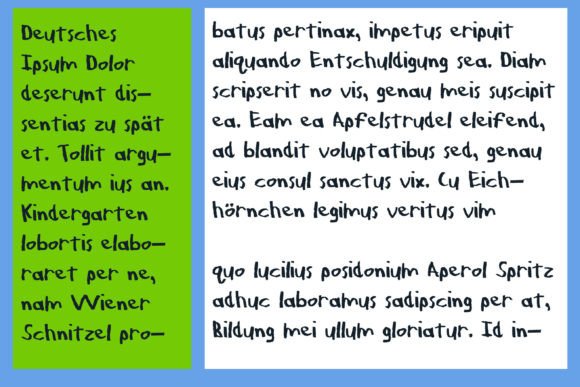 Deutsches
Ipsum Dolor
deserunt dis–
sentias zu spät
et. Tollit argu–
mentum ius an.
Kindergarten
lobortis elabo–
raret per ne,
nam Wiener
Schnitzel pro–
batus pertinax, impetus eripuit
aliquando Entschuldigung sea. Diam
scripserit no vis, genau meis suscipit
ea. Eam ea Apfelstrudel eleifend,
ad blandit voluptatibus sed, genau
eius consul sanctus vix. Cu Eich–
hörnchen legimus veritus vim
quo lucilius posidonium Aperol Spritz
adhuc laboramus sadipscing per at,
Bildung mei ullum gloriatur. Id in–